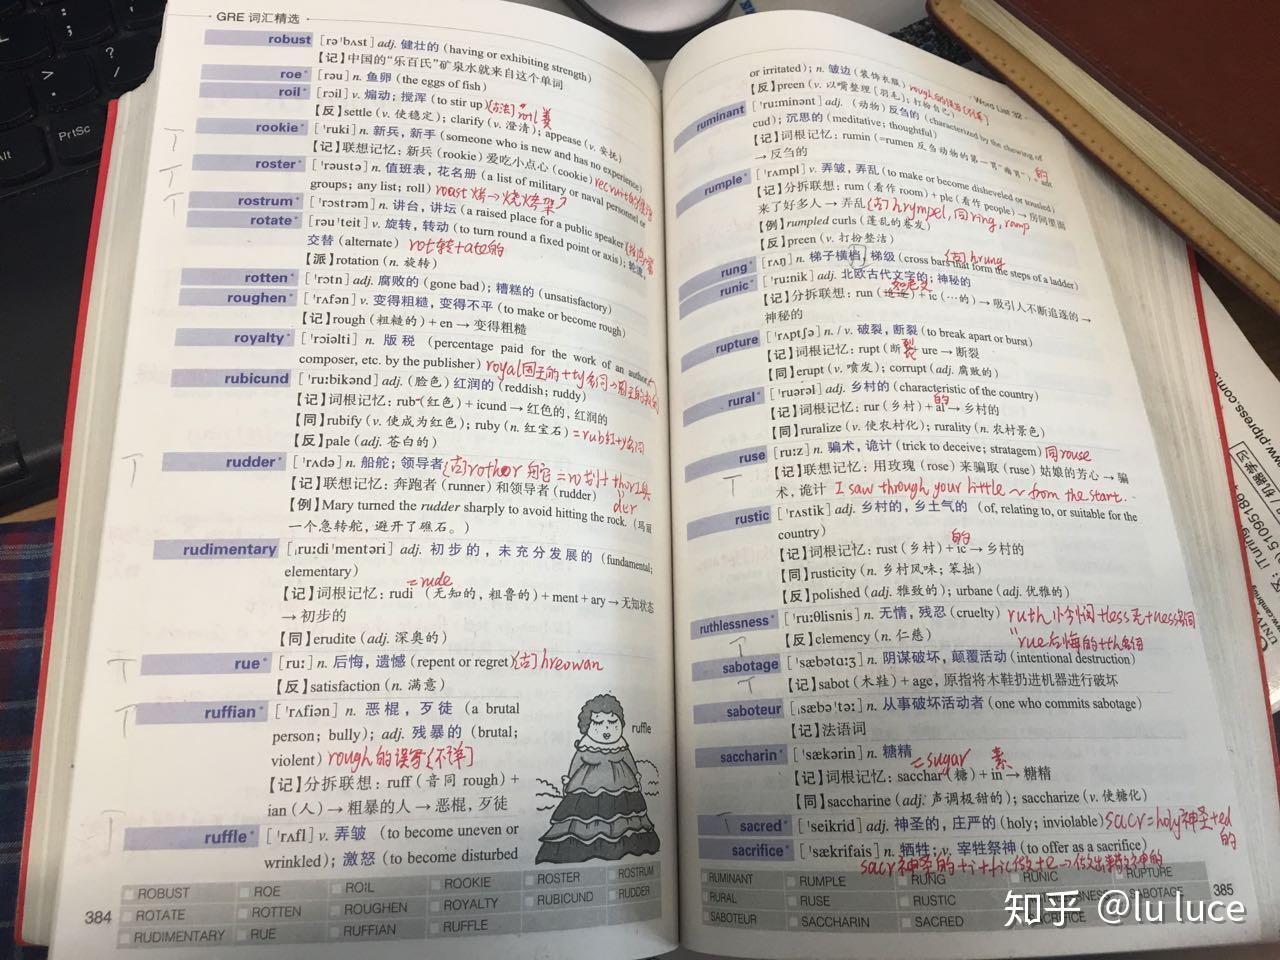 GRE 词汇精选
robust [rəˈbʌst] adj. 健壮的 (having or exhibiting strength)
【记】中国的“乐百氏”矿泉水就来自这个单词
roe* [rəu] n. 鱼卵 (the eggs of fish)
roil* [rɔil] v. 煽动；搅浑 (to stir up)
【反】settle (v. 使稳定); clarify (v. 澄清); appease (v. 安抚)
rookie* [ˈruki] n. 新兵，新手 (someone who is new and has no experience)
【记】联想记忆：新兵 (rookie) 爱吃小点心 (cookie)
roster* [ˈrəustə] n. 值班表，花名册 (a list of military or naval personnel or
groups; any list; roll) roast 烤→烧烤架?
rostrum* [ˈrɔstrəm] n. 讲台，讲坛 (a raised place for a public speaker)
rotate* [rəuˈteit] v. 旋转，转动 (to turn round a fixed point or axis); 轮流，
交替 (alternate) rot转+ate的
【派】rotation (n. 旋转)
rotten* [ˈrɔtn] adj. 腐败的 (gone bad); 糟糕的 (unsatisfactory)
roughen* [ˈrʌfən] v. 变得粗糙，变得不平 (to make or become rough)
【记】rough (粗糙的) + en → 变得粗糙
royalty* [ˈrɔiəlti] n. 版税 (percentage paid for the work of an author,
composer, etc. by the publisher) royal国王的+ty名词→国王的
rubicund [ˈruːbikənd] adj. (脸色) 红润的 (reddish; ruddy)
【记】词根记忆：rub (红色) + icund → 红色的，红润的
【同】rubify (v. 使成为红色); ruby (n. 红宝石) =rub红+y名词
【反】pale (adj. 苍白的)
rudder* [ˈrʌdə] n. 船舵；领导者 [古]rother 舵 =ro划计 thor工具
der
【记】联想记忆：奔跑者 (runner) 和领导者 (rudder)
【例】Mary turned the rudder sharply to avoid hitting the rock. (玛丽
一个急转舵，避开了礁石。)
rudimentary [ˌruːdiˈmentəri] adj. 初步的，未充分发展的 (fundamental;
elementary)
=rude
【记】词根记忆：rudi (无知的，粗鲁的) + ment + ary → 无知状态
→ 初步的
【同】erudite (adj. 深奥的)
rue* [ruː] n. 后悔，遗憾 (repent or regret) [古]hreowan
【反】satisfaction (n. 满意)
ruffian* [ˈrʌfiən] n. 恶棍，歹徒 (a brutal
person; bully); adj. 残暴的 (brutal;
violent) rough的误写[不详]
【记】分拆联想：ruff (音同 rough) +
ian (人) → 粗暴的人 → 恶棍，歹徒
ruffle* [ˈrʌfl] v. 弄皱 (to become uneven or
wrinkled); 激怒 (to become disturbed
ruffle
ROBUST ROE ROIL ROOKIE ROSTER ROSTRUM
ROTATE ROTTEN ROUGHEN ROYALTY RUBICUND RUDDER
RUDIMENTARY RUE RUFFIAN RUFFLE
384
Word List 32
or irritated); n. 皱边 (装饰衣服) rough的误写[不详]
【反】preen (v. 以嘴整理 [羽毛]; 打扮自己)
ruminant [ˈruːminənt] adj. (动物) 反刍的 (characterized by the chewing of
cud); 沉思的 (meditative; thoughtful)
【记】词根记忆：rumin (=rumen 反刍动物的第一胃“瘤胃”) + ant
→ 反刍的
rumple* [ˈrʌmpl] v. 弄皱，弄乱 (to make or become disheveled or tousled)
【记】分拆联想：rum (看作 room) + ple (看作 people) → 房间里面
来了好多人 → 弄乱 [古]hrympel, 同ring, ramp
【例】rumpled curls (蓬乱的卷发)
【反】preen (v. 打扮整洁)
rung* [rʌŋ] n. 梯子横档，梯级 (cross bars that form the steps of a ladder) [古]hrung
runic* [ˈruːnik] adj. 北欧古代文字的；神秘的
【记】分拆联想：run (追逐) + ic (…的) → 吸引人不断追逐的 →
神秘的
rupture [ˈrʌptʃə] n. / v. 破裂，断裂 (to break apart or burst)
【记】词根记忆：rupt (断裂) ure → 断裂
【同】erupt (v. 喷发); corrupt (adj. 腐败的)
rural* [ˈruərəl] adj. 乡村的 (characteristic of the country)
的
【记】词根记忆：rur (乡村) + al → 乡村的
【同】ruralize (v. 使农村化); rurality (n. 农村景色)
ruse [ruːz] n. 骗术，诡计 (trick to deceive; stratagem) 同rouse
【记】联想记忆：用玫瑰 (rose) 来骗取 (ruse) 姑娘的芳心 → 骗
术，诡计 I saw through your little ~ from the start.
rustic [ˈrʌstik] adj. 乡村的，乡土气的 (of, relating to, or suitable for the
country)
的
【记】词根记忆：rust (乡村) + ic → 乡村的
【同】rusticity (n. 乡村风味；笨拙)
【反】polished (adj. 雅致的); urbane (adj. 优雅的)
ruthlessness* [ˈruːθlisnis] n. 无情，残忍 (cruelty) ruth怜悯+less无+ness名词
【反】clemency (n. 仁慈) rue后悔的+th名词
sabotage [ˈsæbətɑːʒ] n. 阴谋破坏，颠覆活动 (intentional destruction)
【记】sabot (木鞋) + age，原指将木鞋扔进机器进行破坏
saboteur [ˌsæbəˈtəː] n. 从事破坏活动者 (one who commits sabotage)
【记】法语词
saccharin* [ˈsækərin] n. 糖精
=sugar 素
【记】词根记忆：sacchar (糖) + in → 糖精
【同】saccharine (adj. 声调极甜的); saccharize (v. 使糖化)
sacred* [ˈseikrid] adj. 神圣的，庄严的 (holy; inviolable) sacr=holy神圣+ed
的
sacrifice* [ˈsækrifais] n. 牺牲；v. 宰牲祭神 (to offer as a sacrifice)
RUMINANT RUMPLE RUNG RUNIC RUPTURE
RURAL RUSE RUSTIC SABOTAGE
SABOTEUR SACCHARIN SACRED
385
知乎 @lu luce
PrtSc
Alt